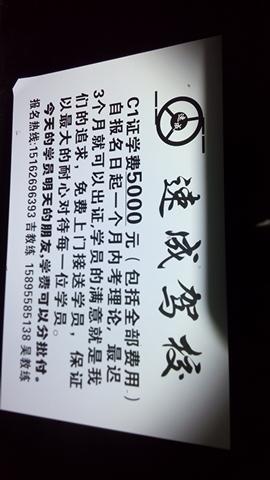 速成驾校
C1证学费5000元（包括全部费用）
自报名日起一个月内考理论，最迟
3个月就可以出证,学员的满意就是我
们的追求，免费上门接送学员，保证
以最大的耐心对待每一位学员。
今天的学员明天的朋友,学费可以分批付。
报名热线:15162696393 吉教练 15895585138 吴教练